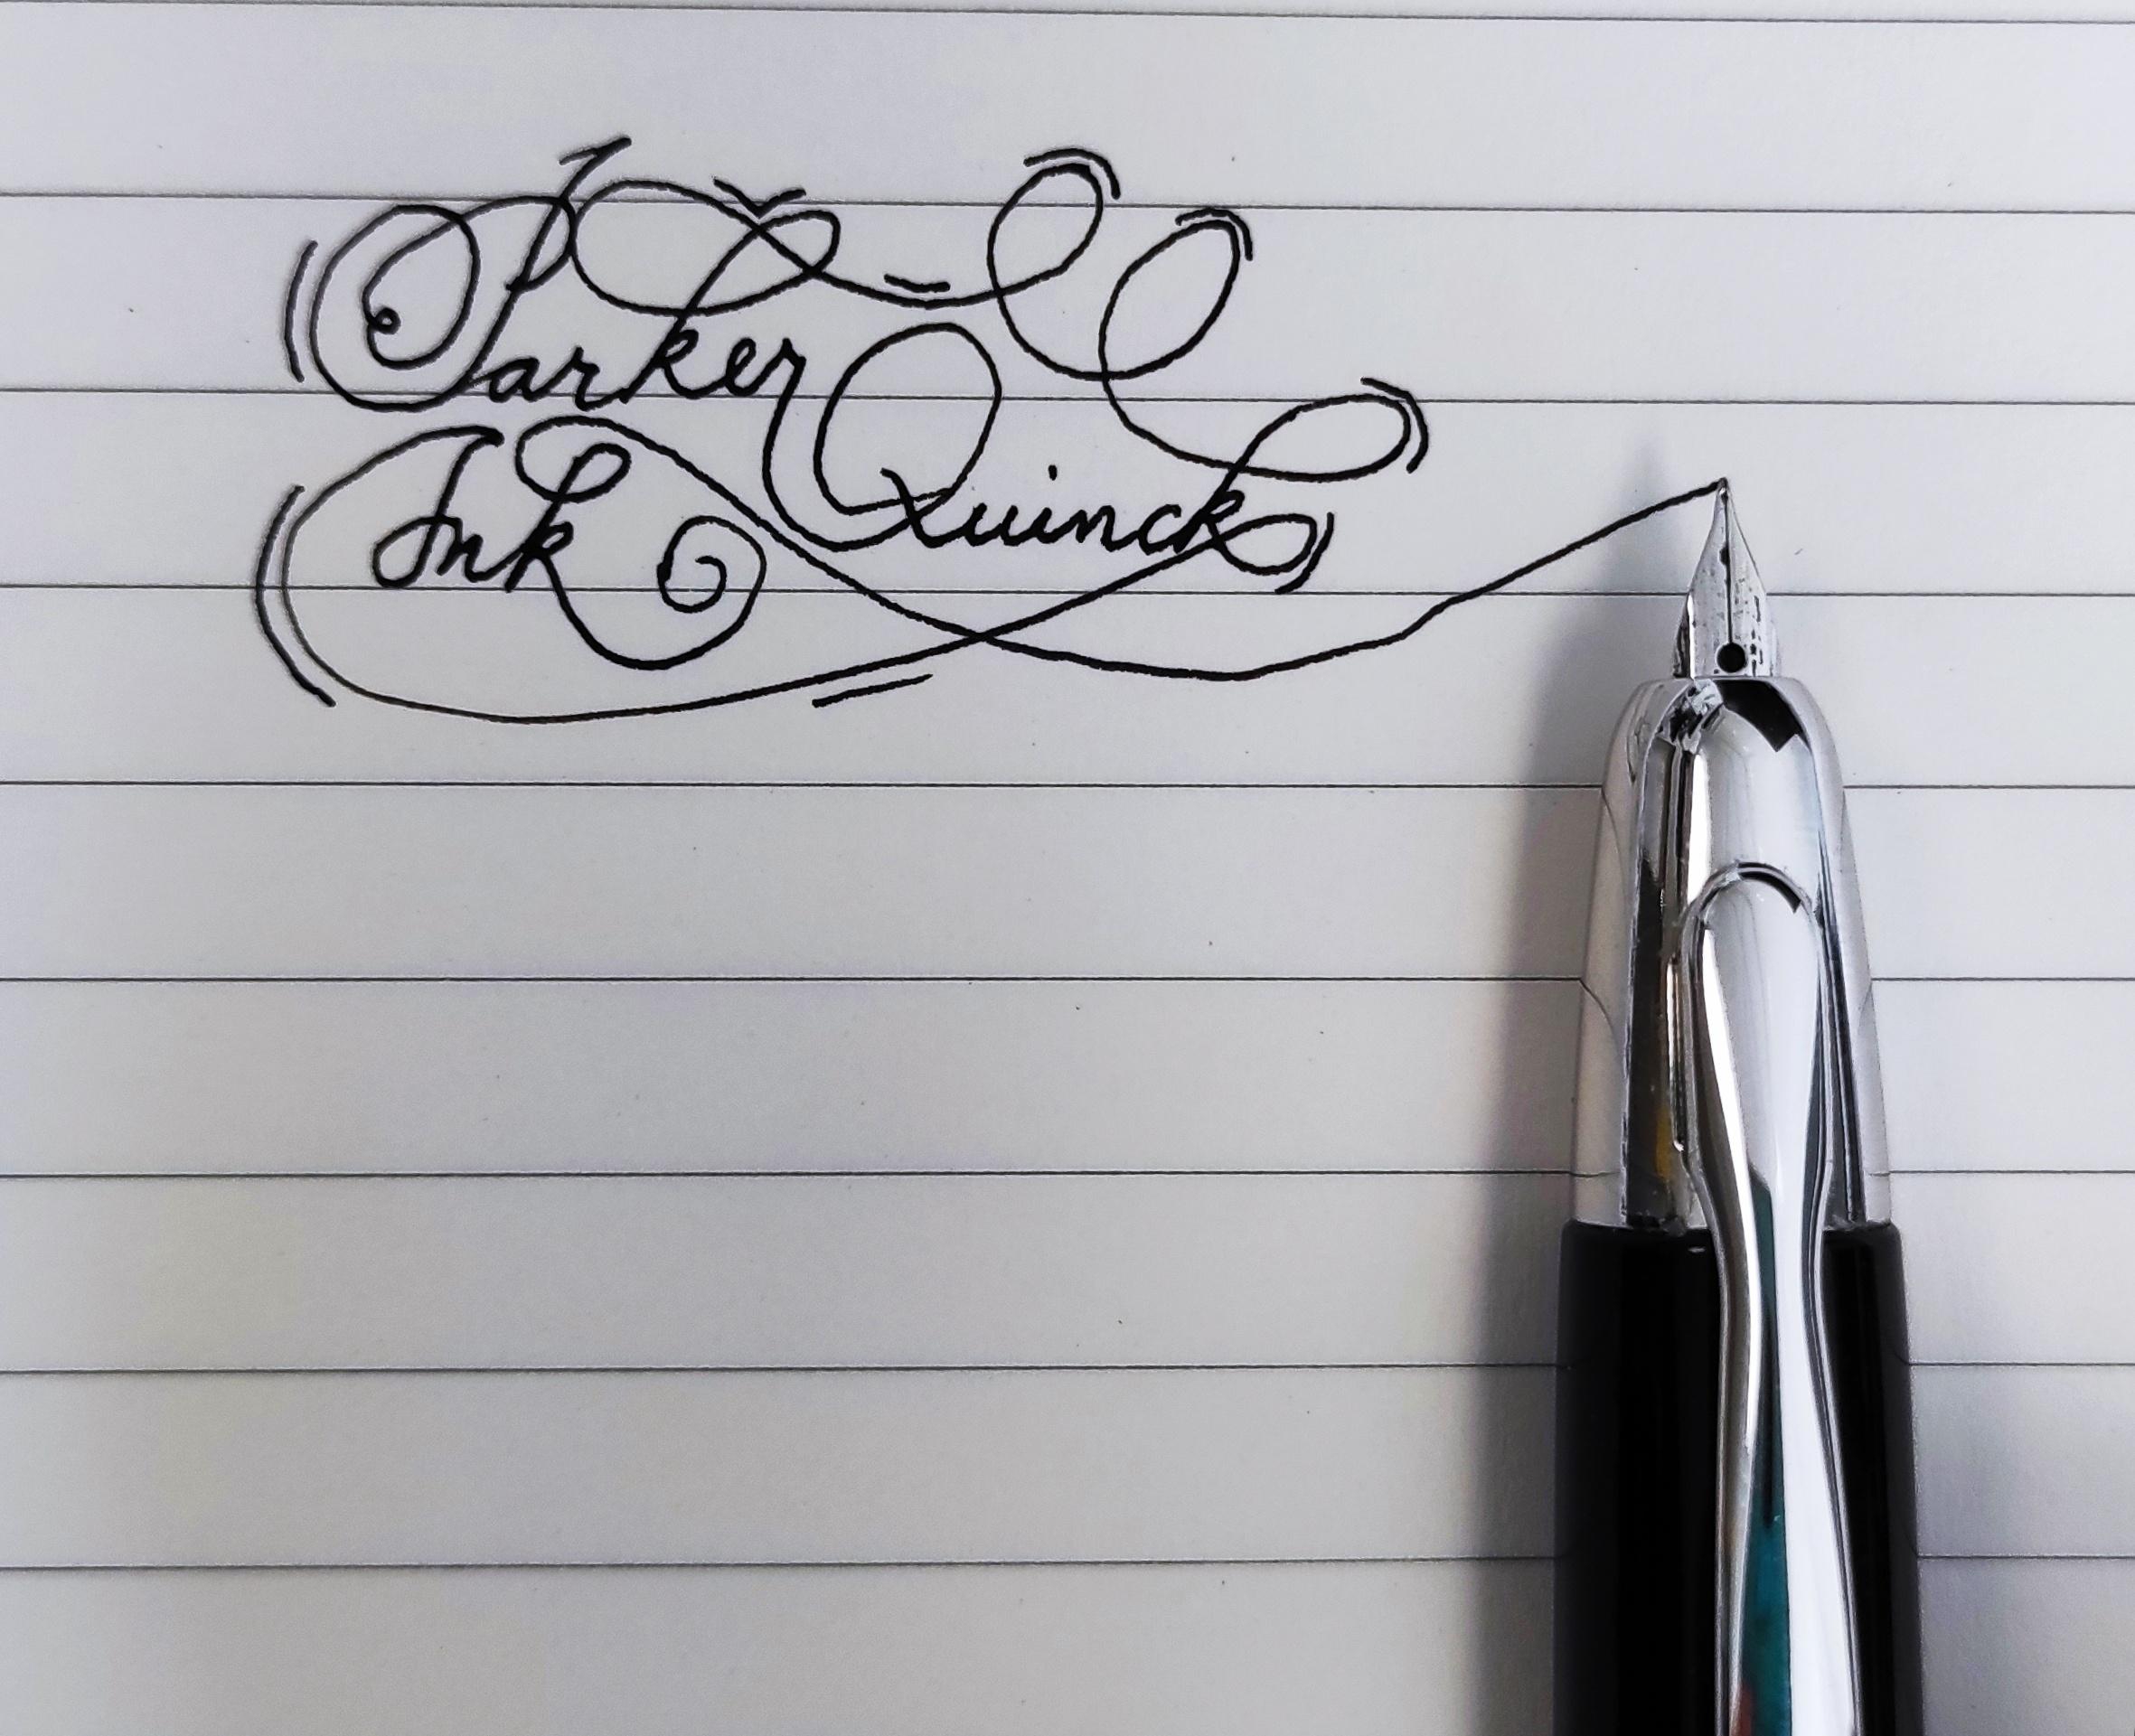 Parker
Quinck
Ink